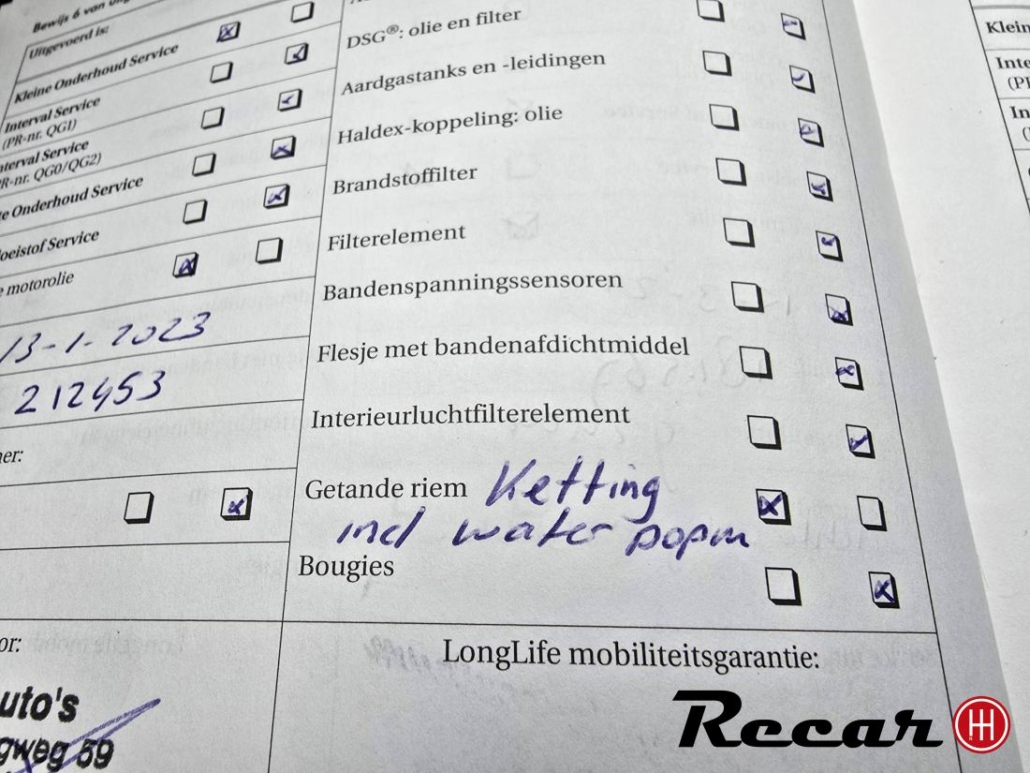 Bewijs 6 van
Uitgevoerd is:
Kleine Onderhoud Service
Interval Service
(PR-nr. QG1)
nterval Service
PR-nr. QG0/QG2)
e Onderhoud Service
loeistof Service
e motorolie
13-1-2023
212453
ner:
or:
uto's
gweg 59
DSG®: olie en filter
Aardgastanks en -leidingen
Haldex-koppeling: olie
Brandstoffilter
Filterelement
Bandenspanningssensoren
Flesje met bandenafdichtmiddel
Interieurluchtfilterelement
Getande riem Ketting
incl water popm
Bougies
LongLife mobiliteitsgarantie:
Recar
Klein
Inte
(PR
In